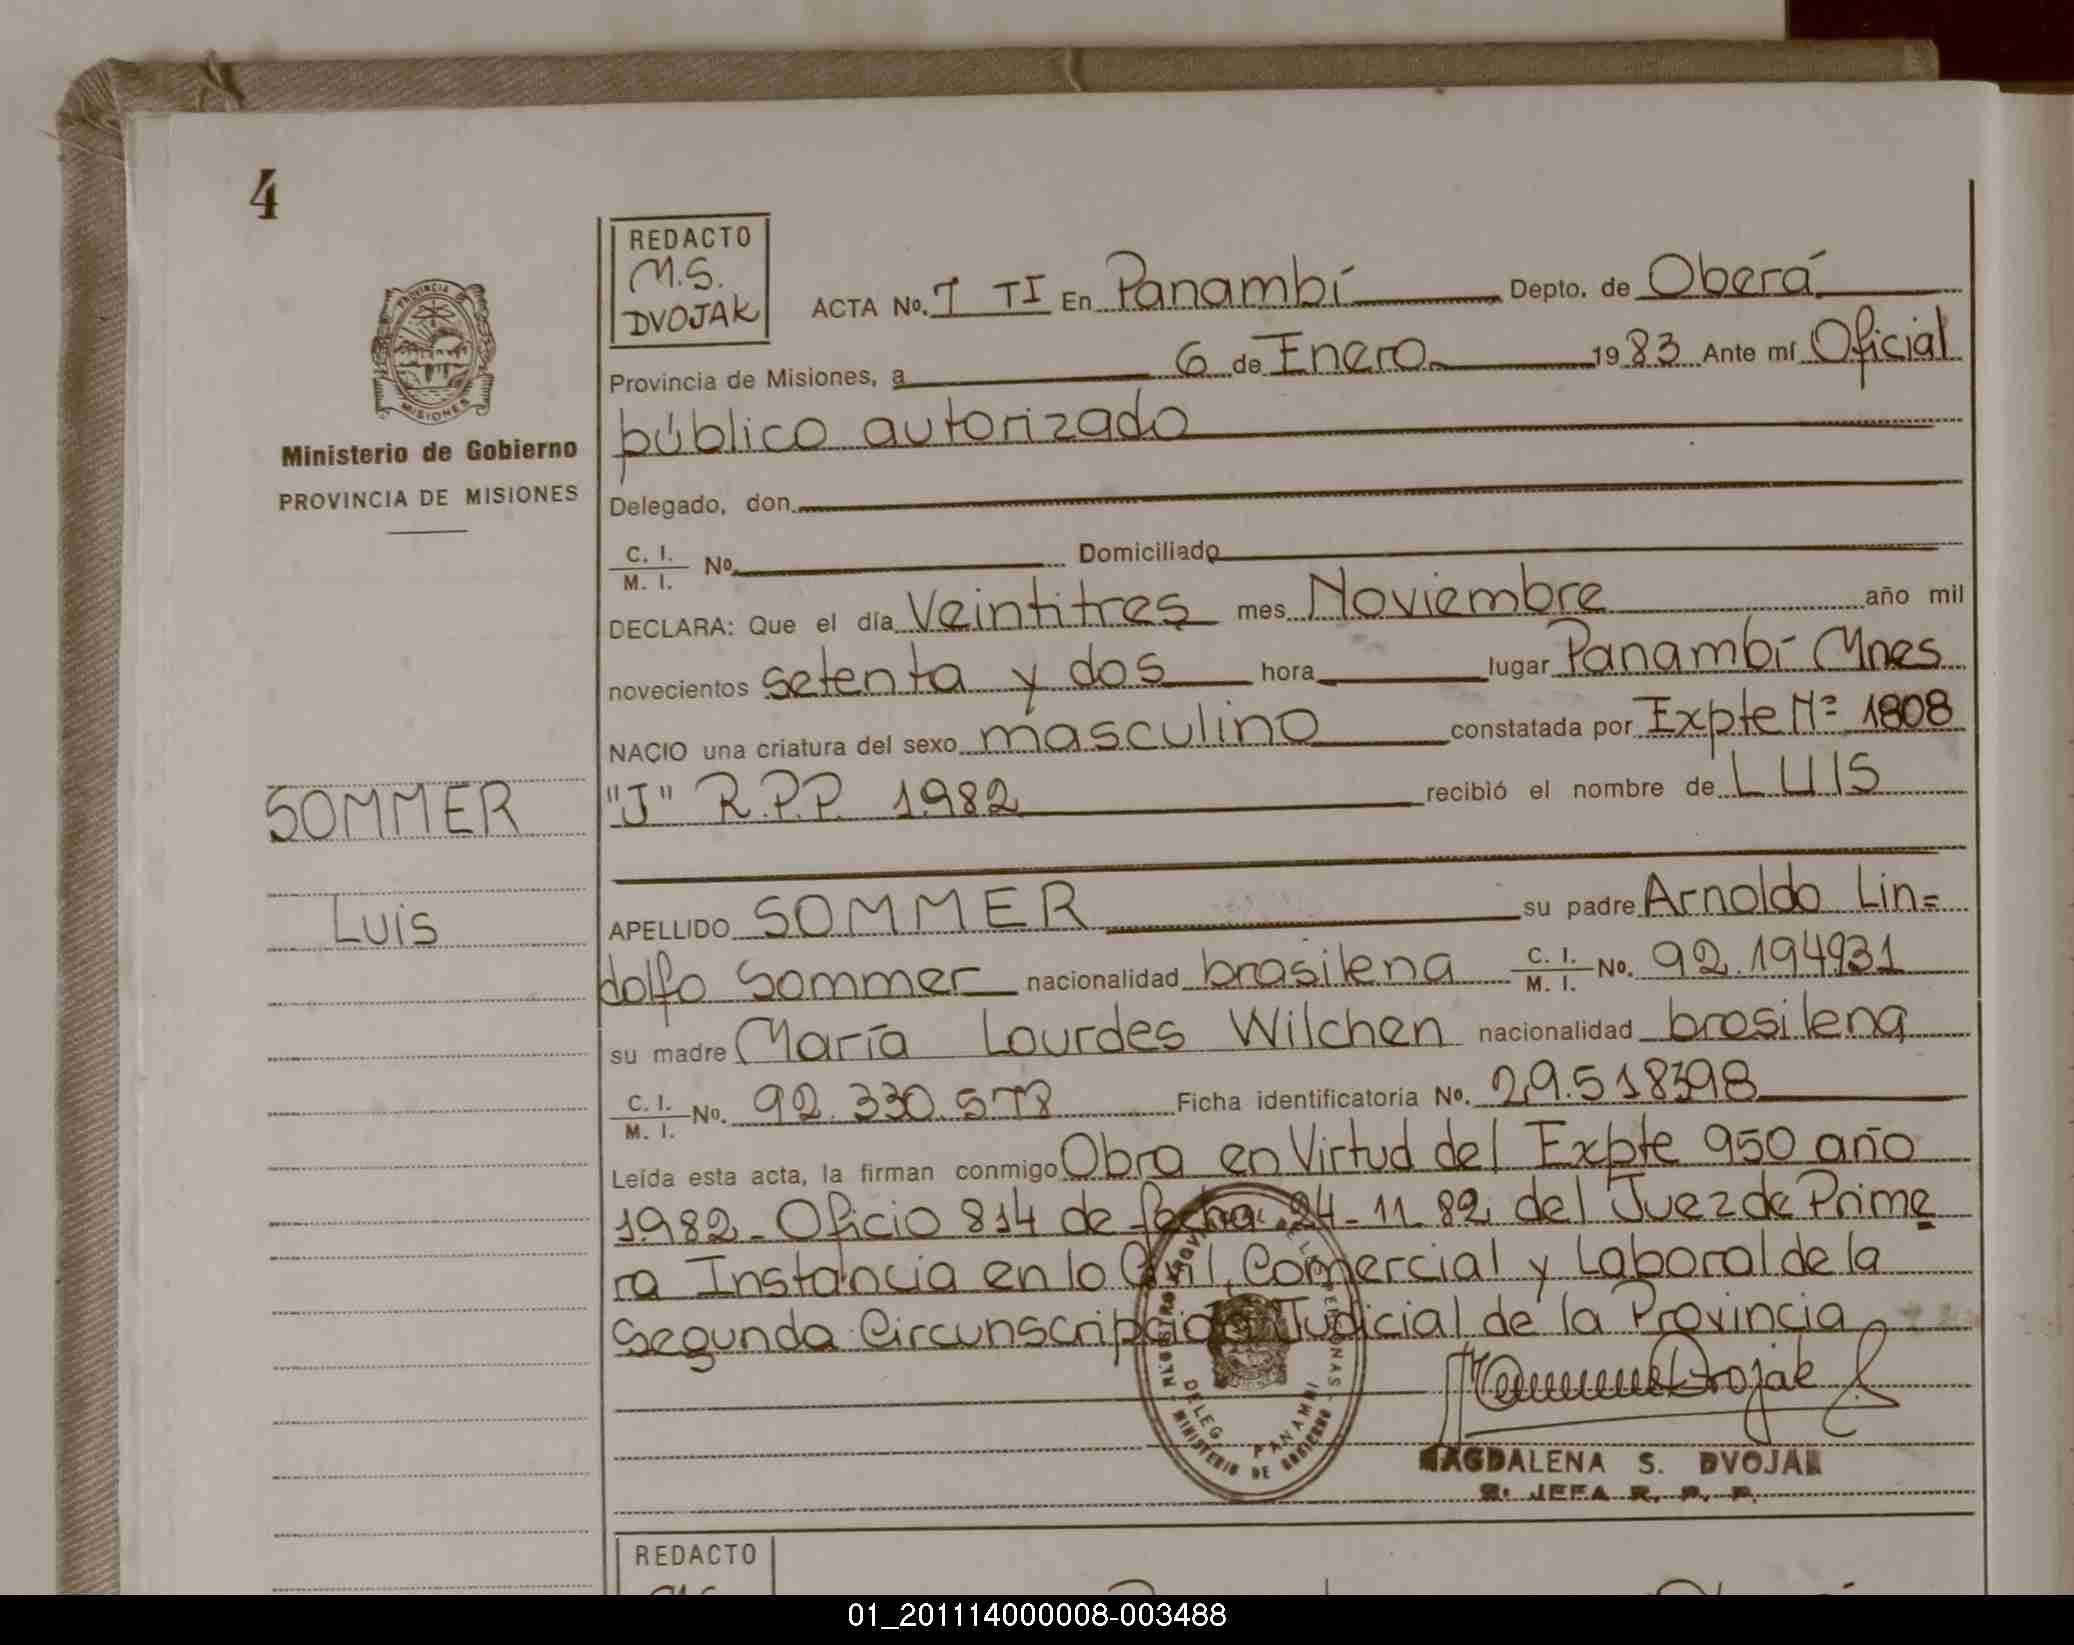 4
REDACTO
M.S.
DVOJAK
ACTA No. 1 TI En Panambí Depto. de Oberá
Provincia de Misiones, a 6 de Enero 1983 Ante mí Oficial
público autorizado
Delegado, don
C. I.
M. I. No. Domiciliado
DECLARA: Que el día Veintitres mes Noviembre año mil
novecientos setenta y dos hora lugar Panambí Mnes
NACIO una criatura del sexo masculino constatada por Expte Nº 1808
"J" R.P.P. 1982 recibió el nombre de LUIS
APELLIDO SOMMER su padre Arnoldo Lin=
dolfo Sommer nacionalidad brasilena C. I. M. I. No. 92.194931
su madre María Lourdes Wilchen nacionalidad brasilena
C. I. M. I. No. 92.330.578 Ficha identificatoria No. 29.518398
Leída esta acta, la firman conmigo Obra en Virtud del Expte 950 año
1982 - Oficio 814 de fecha 24-11 82 del Juez de Prime
ra Instancia en lo Civil, Comercial y Laboral de la
Segunda Circunscripción Judicial de la Provincia
Dvojak
MAGDALENA S. DVOJAK
JEFA R. P. P.
DELEG. PANAMBI
MINISTERIO DE GOBIERNO
PROVINCIA
MISIONES
Ministerio de Gobierno
PROVINCIA DE MISIONES
SOMMER
Luis
REDACTO
01_201114000008-003488